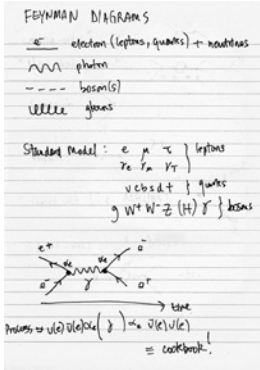 FEYNMAN DIAGRAMS
e⁻ electron (leptons, quarks) + neutrinos
photon
boson(s)
gluons
Standard Model : e μ τ } leptons
γe γμ γτ
u c b s d t } quarks
g W+ W- Z (H) γ } bosons
e+ e-
αe αe
γ
e- e+
time
Process ≈
≡ cookbook!